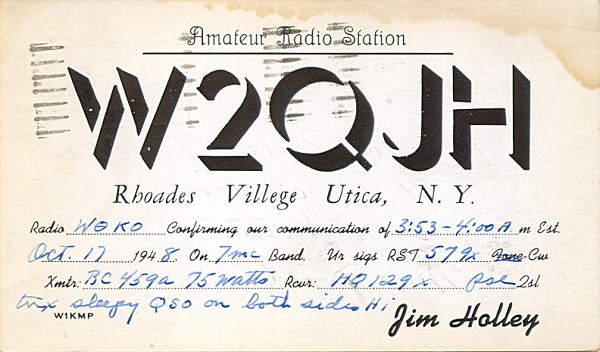 Amateur Radio Station
W2QJH
Rhoades Villege Utica, N. Y.
Radio WØKO Confirming our communication of 3:53-4:00A m Est.
Oct. 17 1948. On 7mc Band. Ur sigs RST 579x Fone-Cw
Xmtr: BC 459a 75 watts Rcvr: HQ129x Pse 2sl
tnx sleepy QSO on both sides Hi
W1KMP
Jim Holley